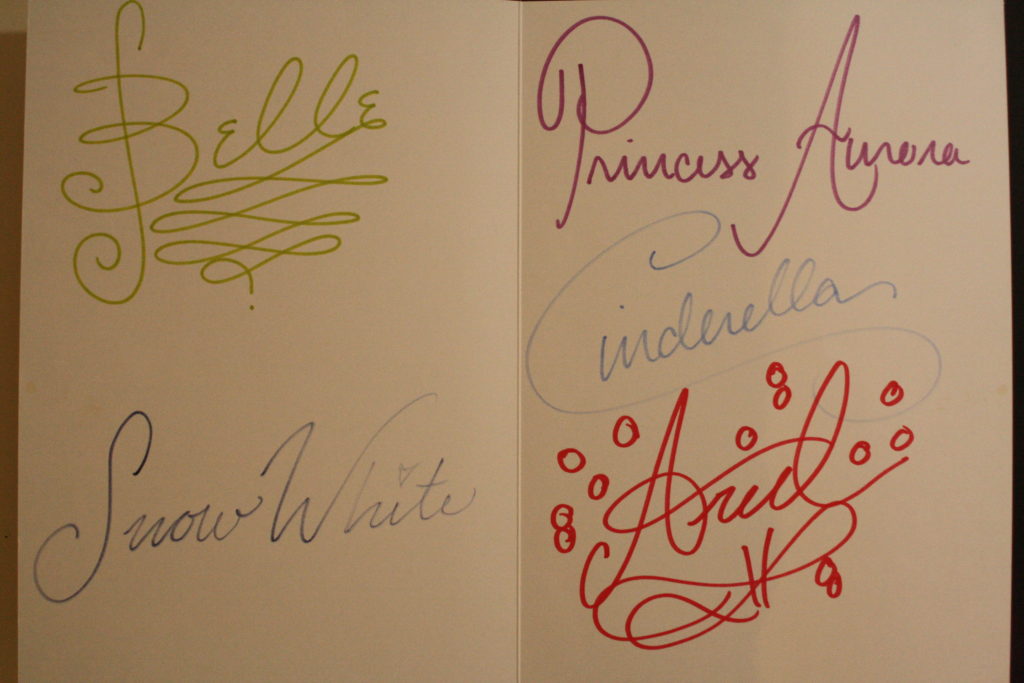 Belle
Snow White
Princess Aurora
Cinderella
Ariel